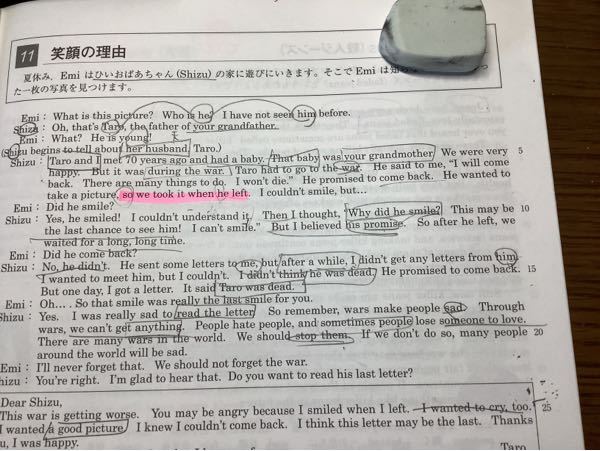 11 笑顔の理由
夏休み，Emi はひいおばあちゃん (Shizu) の家に遊びにいきます。そこで Emi は
た一枚の写真を見つけます。
Emi : What is this picture? Who is he? I have not seen him before.
Shizu : Oh, that's Taro, the father of your grandfather.
Emi : What? He is young!
(Shizu begins to tell about her husband, Taro.)
Shizu : Taro and I met 70 years ago and had a baby. That baby was your grandmother. We were very 5
happy. But it was during the war. Taro had to go to the war. He said to me, "I will come
back. There are many things to do. I won't die." He promised to come back. He wanted to
take a picture, so we took it when he left. I couldn't smile, but...
Emi : Did he smile?
Shizu : Yes, he smiled! I couldn't understand it. Then I thought, "Why did he smile? This may be 10
the last chance to see him! I can't smile." But I believed his promise. So after he left, we
waited for a long, long time.
Emi : Did he come back?
Shizu : No, he didn't. He sent some letters to me, but after a while, I didn't get any letters from him.
I wanted to meet him, but I couldn't. I didn't think he was dead. He promised to come back. 15
But one day, I got a letter. It said Taro was dead.
Emi : Oh.... So that smile was really the last smile for you.
Shizu : Yes. I was really sad to read the letter. So remember, wars make people sad. Through
wars, we can't get anything. People hate people, and sometimes people lose someone to love.
There are many wars in the world. We should stop them. If we don't do so, many people 20
around the world will be sad.
Emi : I'll never forget that. We should not forget the war.
hizu : You're right. I'm glad to hear that. Do you want to read his last letter?
Dear Shizu,
This war is getting worse. You may be angry because I smiled when I left. I wanted to cry, too. 25
I wanted a good picture. I knew I couldn't come back. I think this letter may be the last. Thanks
u, I was happy.
Taro